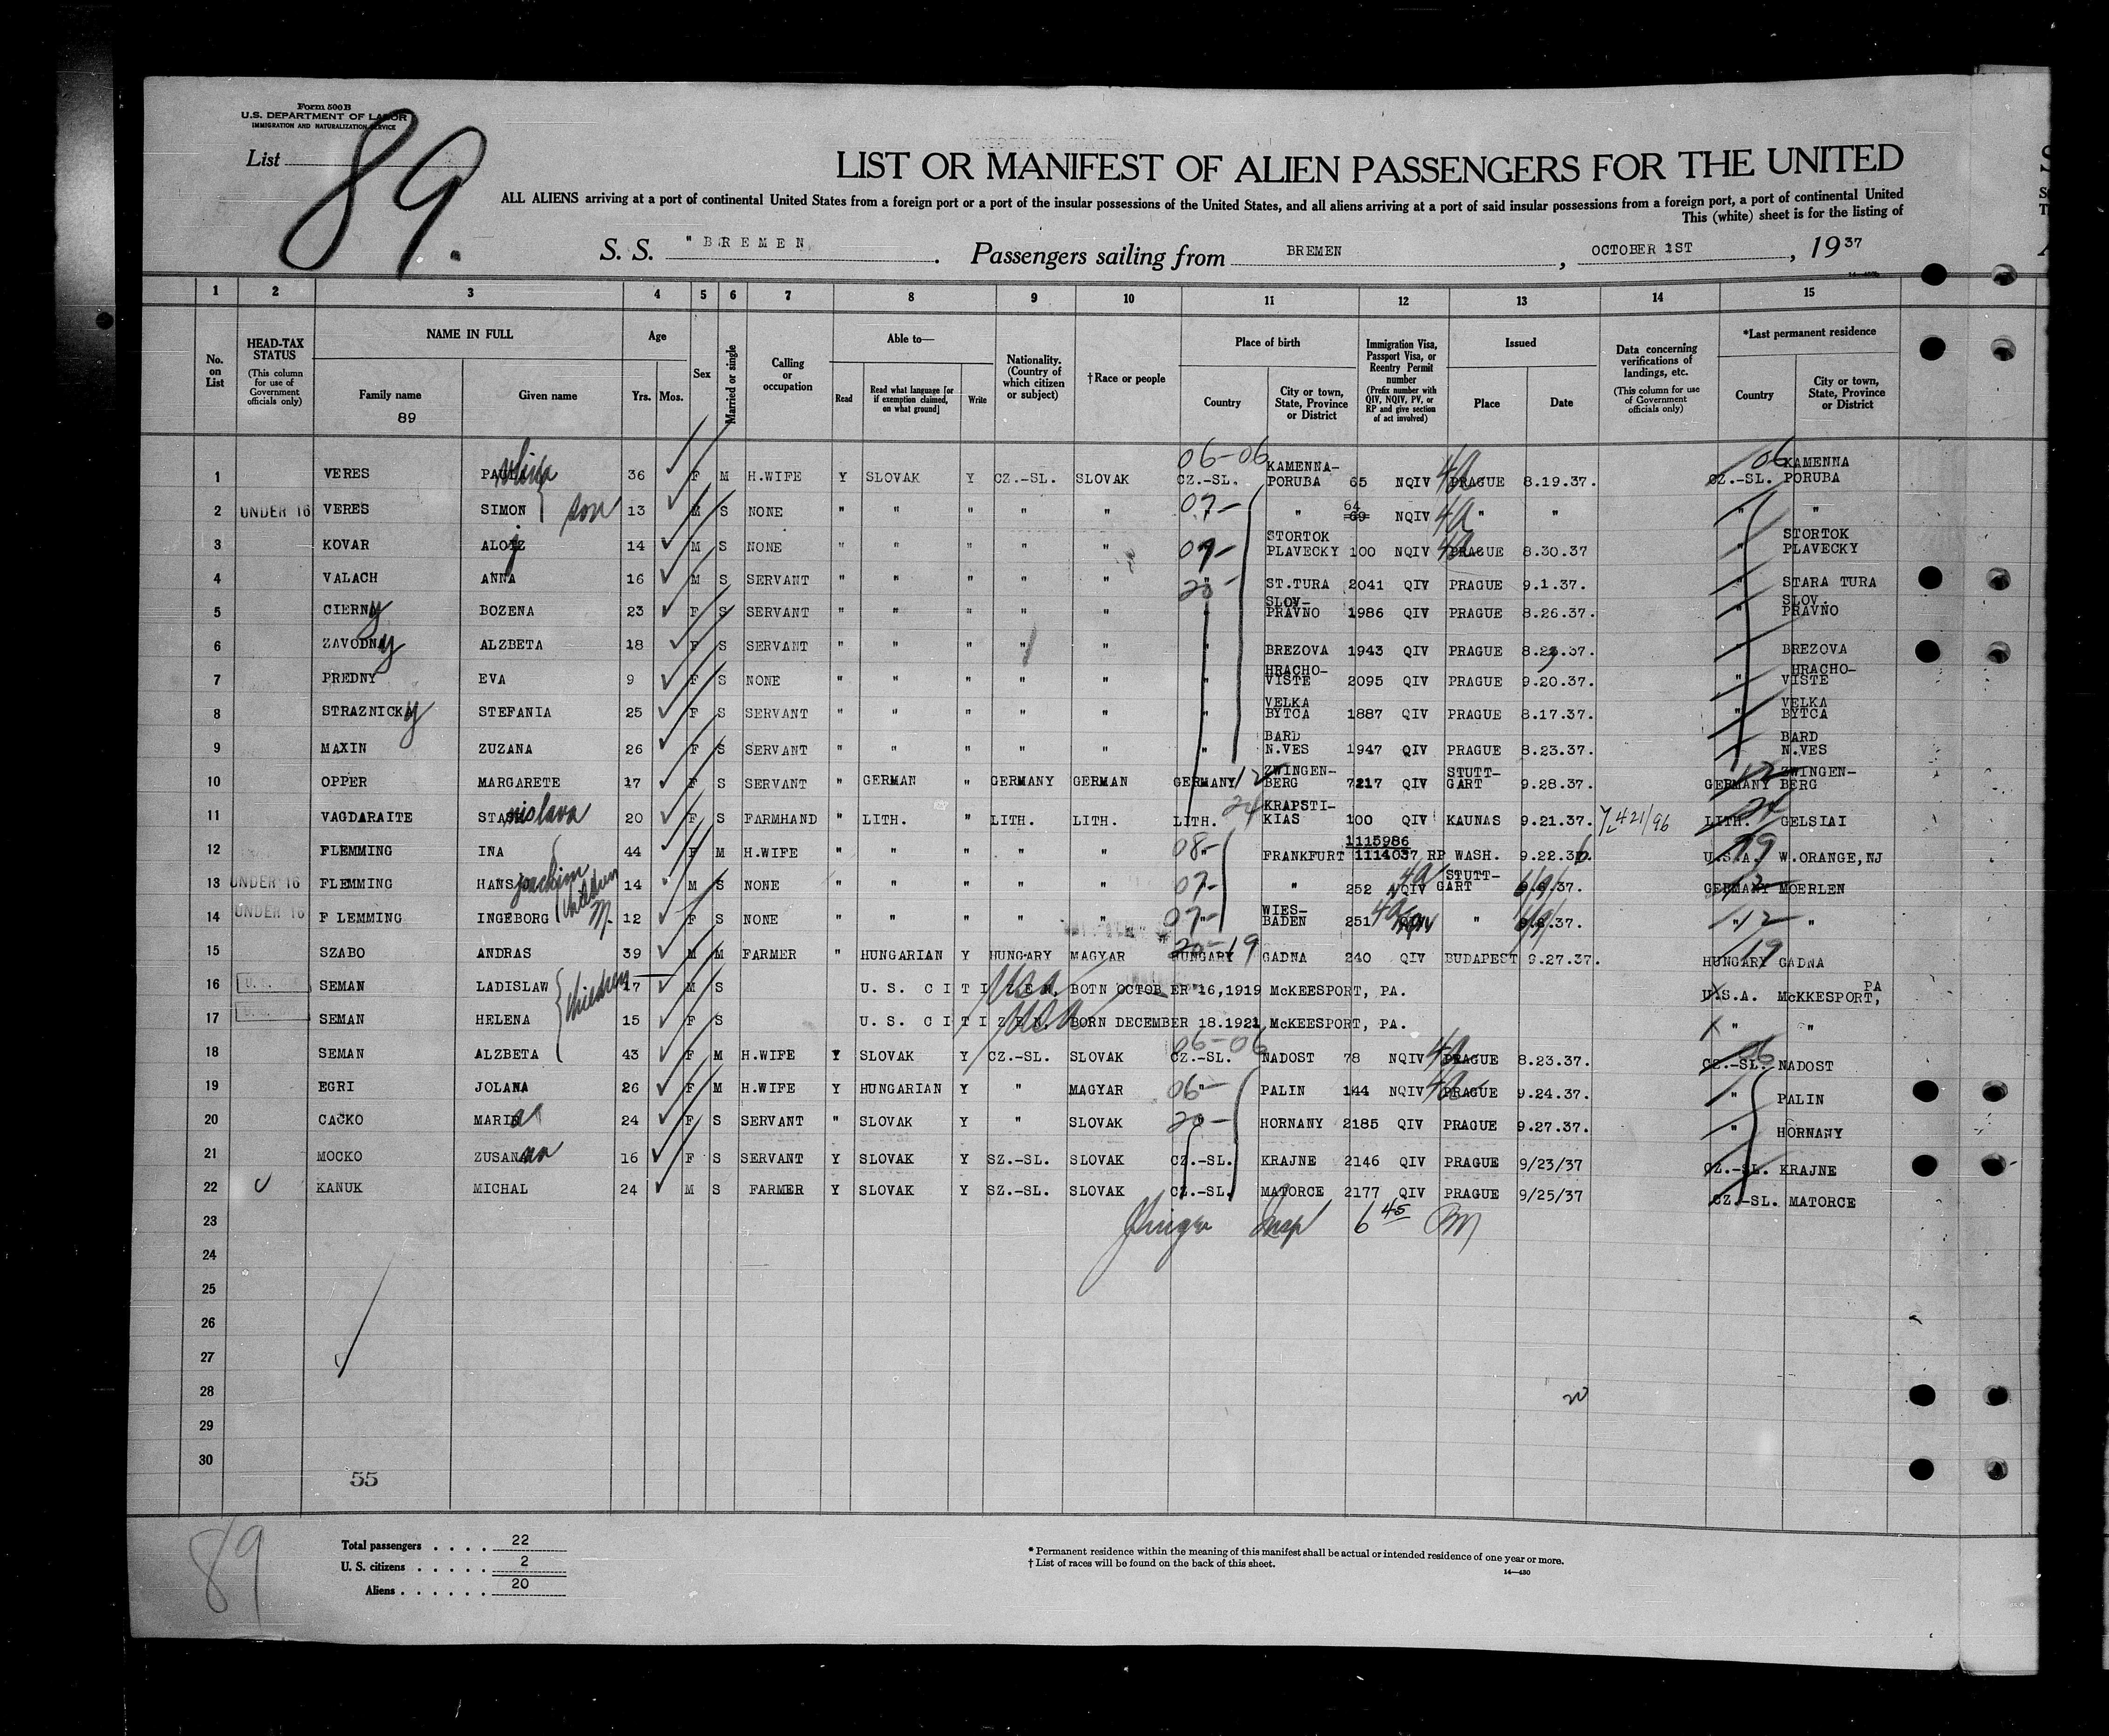 Form 500B
U.S. DEPARTMENT OF LABOR
IMMIGRATION AND NATURALIZATION SERVICE
List
89.
LIST OR MANIFEST OF ALIEN PASSENGERS FOR THE UNITED
ALL ALIENS arriving at a port of continental United States from a foreign port or a port of the insular possessions of the United States, and all aliens arriving at a port of said insular possessions from a foreign port, a port of continental United
This (white) sheet is for the listing of
S. S. "BREMEN. Passengers sailing from BREMEN, OCTOBER 1ST, 1937
1 2 3 4 5 6 7 8 9 10 11 12 13 14 15
No. on List
HEAD-TAX STATUS (This column for use of Government officials only)
NAME IN FULL Family name Given name
89
Age Yrs. Mos.
Sex
Married or single
Calling or occupation
Able to— Read Read what language [or if exemption claimed, on what ground] Write
Nationality. (Country of which citizen or subject)
†Race or people
Place of birth Country City or town, State, Province or District
Immigration Visa, Passport Visa, or Reentry Permit number (Prefix number with QIV, NQIV, PV, or RP and give section of act involved)
Issued Place Date
Data concerning verifications of landings, etc. (This column for use of Government officials only)
*Last permanent residence Country City or town, State, Province or District
1 VERES PAULA 36 F M H.WIFE Y SLOVAK Y CZ.-SL. SLOVAK 06-06 CZ.-SL. KAMENNA-PORUBA 65 NQIV 4a PRAGUE 8.19.37. 06 CZ.-SL. KAMENNA PORUBA
2 UNDER 16 VERES SIMON son 13 M S NONE " " " " " 07- " 64 69 NQIV 4a " " " "
3 KOVAR ALOIZ j 14 M S NONE " " " " " 07- STORTOK PLAVECKY 100 NQIV 4a PRAGUE 8.30.37 " STORTOK PLAVECKY
4 VALACH ANNA 16 M S SERVANT " " " " " 20- ST.TURA 2041 QIV PRAGUE 9.1.37. " STARA TURA
5 CIERNA y BOZENA 23 F S SERVANT " " " " " " SLOV-PRAVNO 1986 QIV PRAGUE 8.26.37. " SLOV. PRAVNO
6 ZAVODNA y ALZBETA 18 F S SERVANT " " " " " " BREZOVA 1943 QIV PRAGUE 8.23.37. " BREZOVA
7 PREDNY EVA 9 F S NONE " " " " " " HRACHO-VISTE 2095 QIV PRAGUE 9.20.37. " HRACHO-VISTE
8 STRAZNICKA y STEFANIA 25 F S SERVANT " " " " " " VELKA BYTCA 1887 QIV PRAGUE 8.17.37. " VELKA BYTCA
9 MAXIN ZUZANA 26 F S SERVANT " " " " " " BARD N.VES 1947 QIV PRAGUE 8.23.37. " BARD N.VES
10 OPPER MARGARETE 17 F S SERVANT " GERMAN " GERMANY GERMAN GERMANY 12 ZWINGEN-BERG 7217 QIV STUTT-GART 9.28.37. GERMANY 12 ZWINGEN-BERG
11 VAGDARAITE STA nislava 20 F S FARMHAND " LITH. " LITH. LITH. LITH. 24 KRAPSTI-KIAS 100 QIV KAUNAS 9.21.37. LITH. 24 GELSIAI
12 FLEMMING INA 44 F M H.WIFE " " " " " 08- FRANKFURT 1115986 1114037 RP WASH. 9.22.36. U.S.A. W.ORANGE,NJ
13 UNDER 16 FLEMMING HANS Joachim children 14 M S NONE " " " " " 07- " 252 4a NQIV STUTT-GART 37. GERMANY 12 MOERLEN
14 UNDER 16 F LEMMING INGEBORG M. 12 F S NONE " " " " " 07- WIES-BADEN 251 4a " 37. " 12 "
15 SZABO ANDRAS 39 M M FARMER " HUNGARIAN Y HUNGARY MAGYAR 20-19 HUNGARY GADNA 240 QIV BUDAPEST 9.27.37. HUNGARY 19 GADNA
16 SEMAN LADISLAW children 17 M S U. S. CITIZEN. USA BOTN OCTOBER 16,1919 McKEESPORT, PA. U.S.A. McKKESPORT, PA
17 SEMAN HELENA 15 F S U. S. CITIZEN. USA BORN DECEMBER 18.1921 McKEESPORT, PA. " "
18 SEMAN ALZBETA 43 F M H.WIFE Y SLOVAK Y CZ.-SL. SLOVAK 06-06 CZ.-SL. NADOST 78 NQIV 4a PRAGUE 8.23.37. 06 CZ.-SL. NADOST
19 EGRI JOLANA 26 F M H.WIFE Y HUNGARIAN Y " MAGYAR 06- " PALIN 144 NQIV 4a PRAGUE 9.24.37. " PALIN
20 CACKO MARIE a 24 F S SERVANT " SLOVAK Y " SLOVAK 20- " HORNANY 2185 QIV PRAGUE 9.27.37. " HORNANY
21 MOCKO ZUSANNA 16 F S SERVANT Y SLOVAK Y SZ.-SL. SLOVAK CZ.-SL. KRAJNE 2146 QIV PRAGUE 9/23/37 CZ.-SL. KRAJNE
22 KANUK MICHAL 24 M S FARMER Y SLOVAK Y SZ.-SL. SLOVAK CZ.-SL. MATORCE 2177 QIV PRAGUE 9/25/37 CZ.-SL. MATORCE
23 Insp 6 45 PM
24
25
26
27
28
29
30
55
89
Total passengers . . . . 22
U. S. citizens . . . . . 2
Aliens . . . . . . 20
* Permanent residence within the meaning of this manifest shall be actual or intended residence of one year or more.
† List of races will be found on the back of this sheet.
14—430